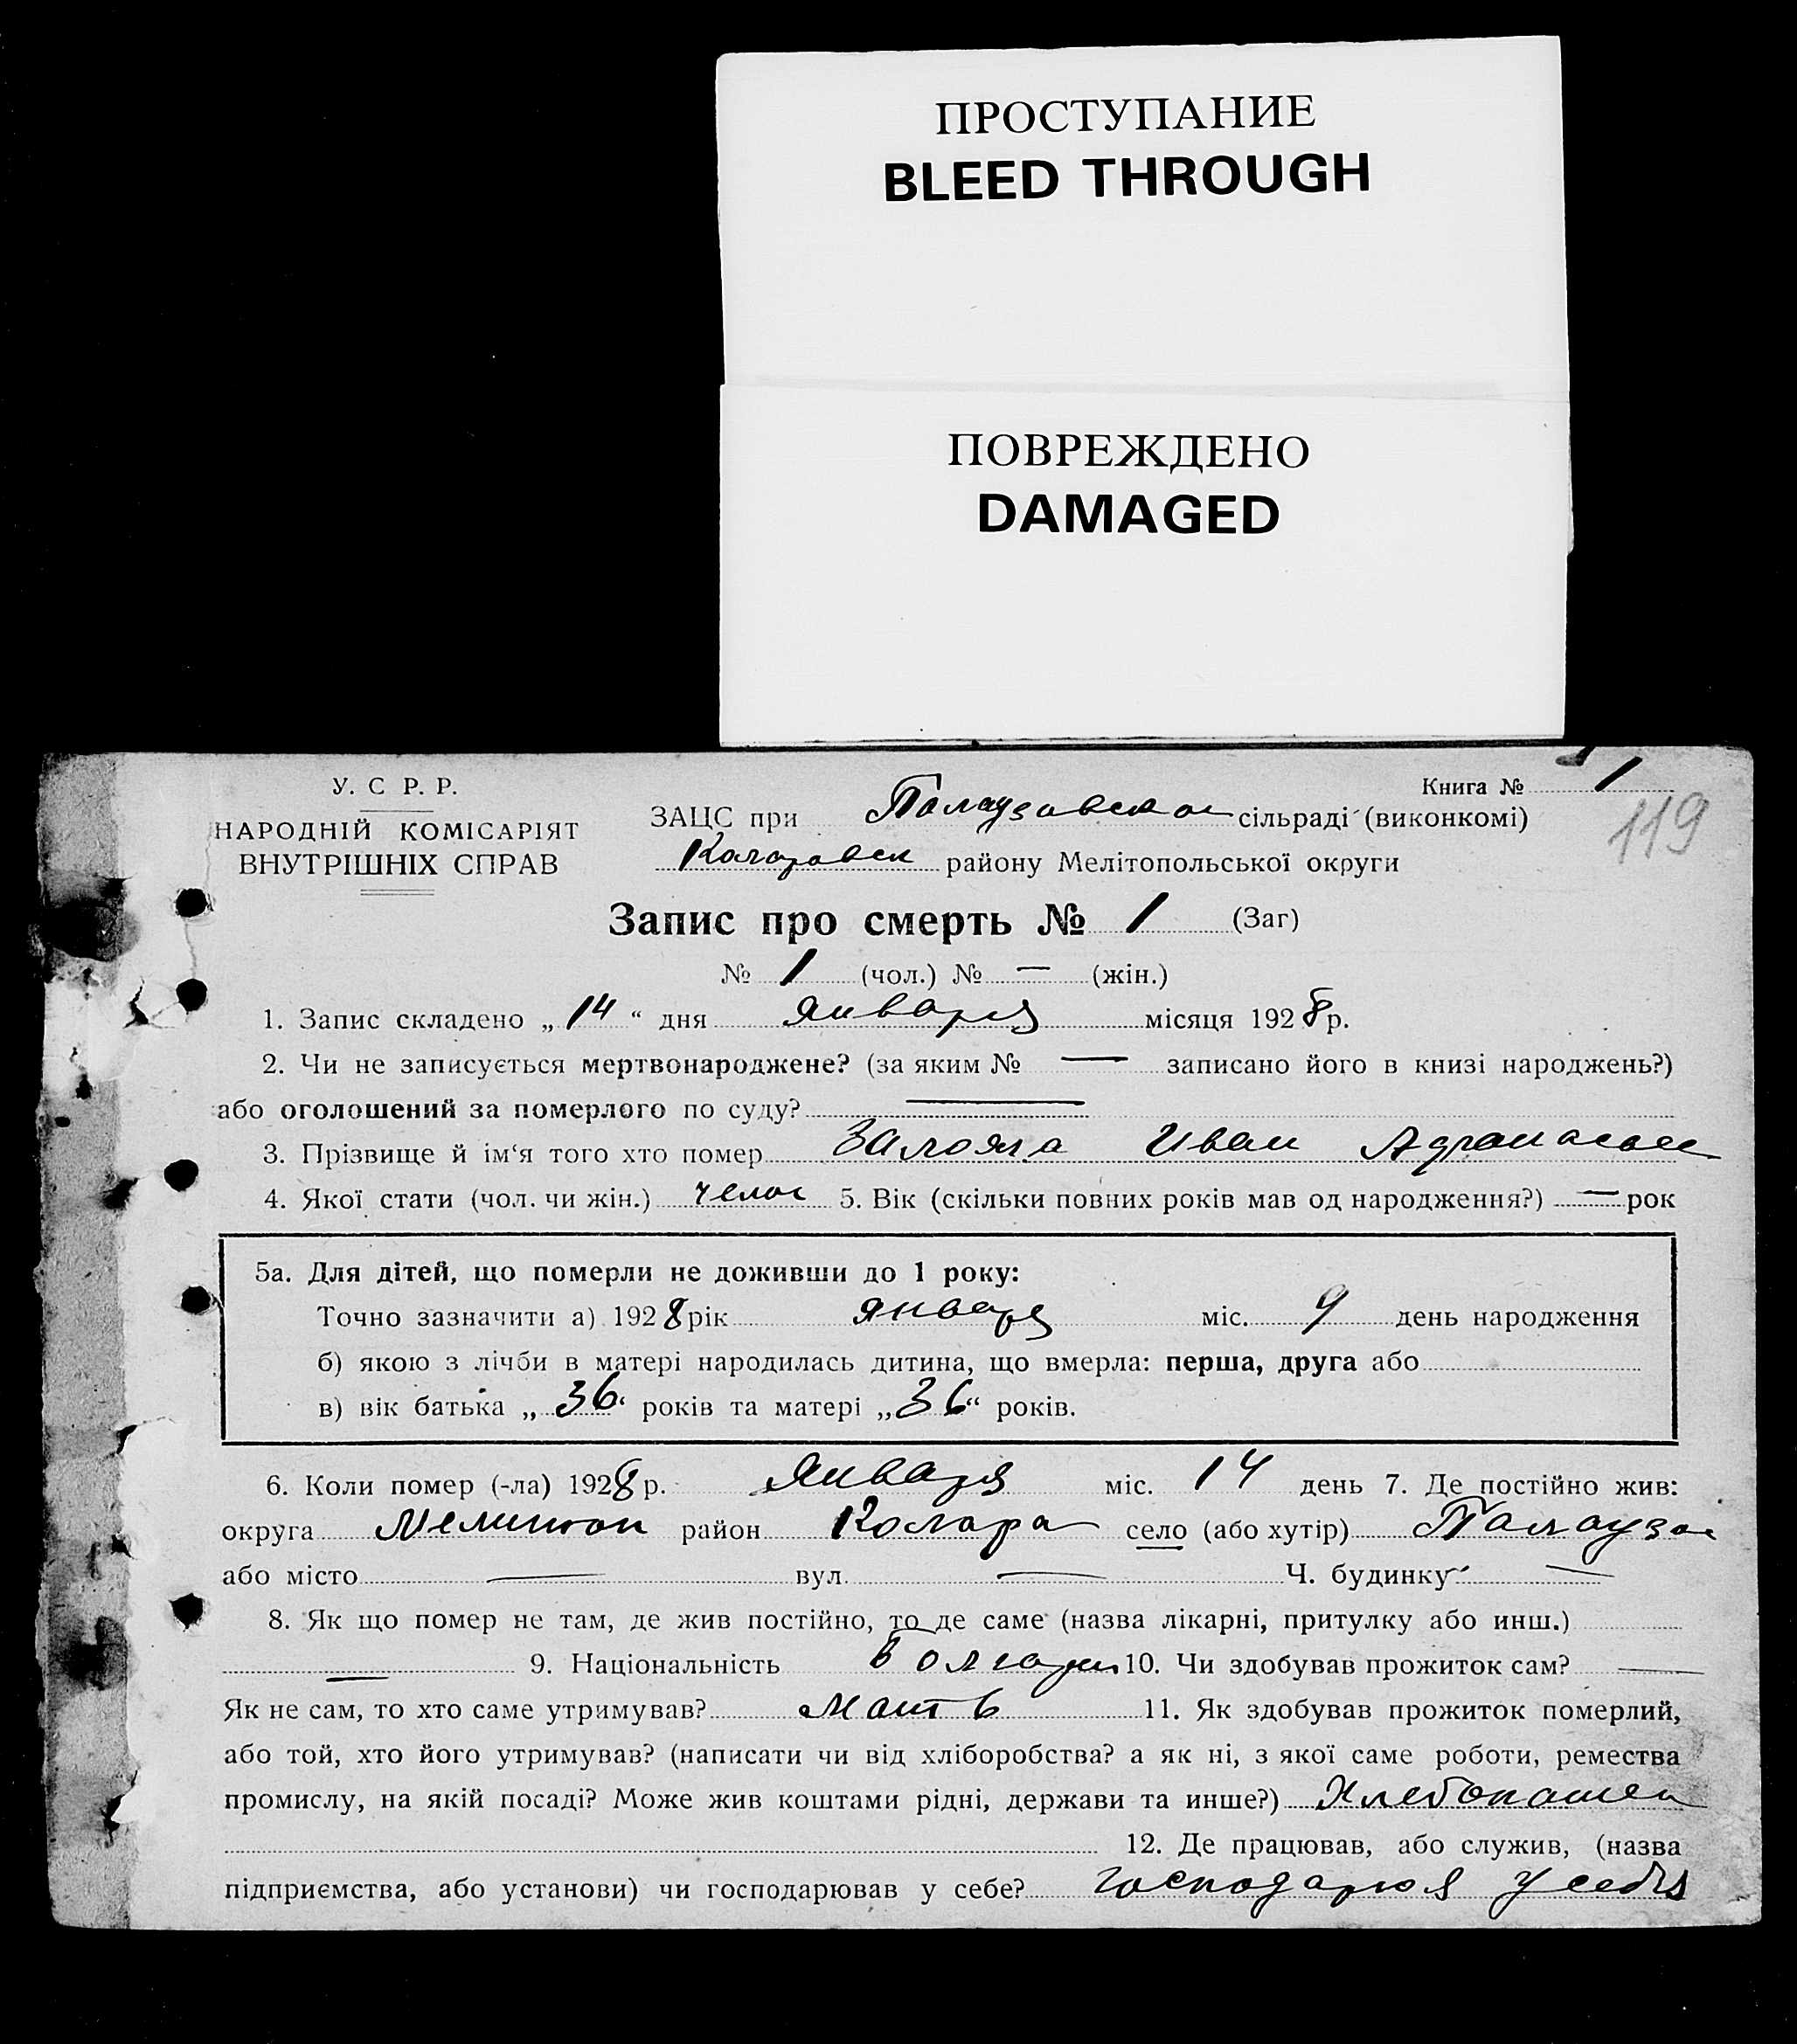 ПРОСТУПАНИЕ
BLEED THROUGH
ПОВРЕЖДЕНО
DAMAGED
У. С Р. Р.
НАРОДНІЙ КОМІСАРІЯТ
ВНУТРІШНІХ СПРАВ
Книга № 1
119
ЗАЦС при сільраді (виконкомі)
району Мелітопольської округи
Запис про смерть № 1 (Заг)
№ 1 (чол.) № — (жін.)
1. Запис складено „ 14 “ дня января місяця 1928 р.
2. Чи не записується мертвонароджене? (за яким № — записано його в книзі народжень?)
або оголошений за померлого по суду? —
3. Прізвище й ім‘я того хто помер Иван
4. Якої стати (чол. чи жін.) 5. Вік (скільки повних років мав од народження?) — рок
5а. Для дітей, що померли не доживши до 1 року:
Точно зазначити а) 1928 рік январь міс. 9 день народження
б) якою з лічби в матері народилась дитина, що вмерла: перша, друга або
в) вік батька „ 36 “ років та матері „ 36 “ років.
6. Коли помер (-ла) 1928 р. Января міс. 14 день 7. Де постійно жив:
округа Мелитоп район Колара село (або хутір)
або місто — вул. — Ч. будинку —
8. Як що помер не там, де жив постійно, то де саме (назва лікарні, притулку або инш.)
— 9. Національність Болгари 10. Чи здобував прожиток сам? —
Як не сам, то хто саме утримував? Мать 11. Як здобував прожиток померлий,
або той, хто його утримував? (написати чи від хліборобства? а як ні, з якої саме роботи, ремества
промислу, на якій посаді? Може жив коштами рідні, держави та инше?) Хлебопашец
12. Де працював, або служив, (назва
підприємства, або установи) чи господарював у себе? господарюя у себя